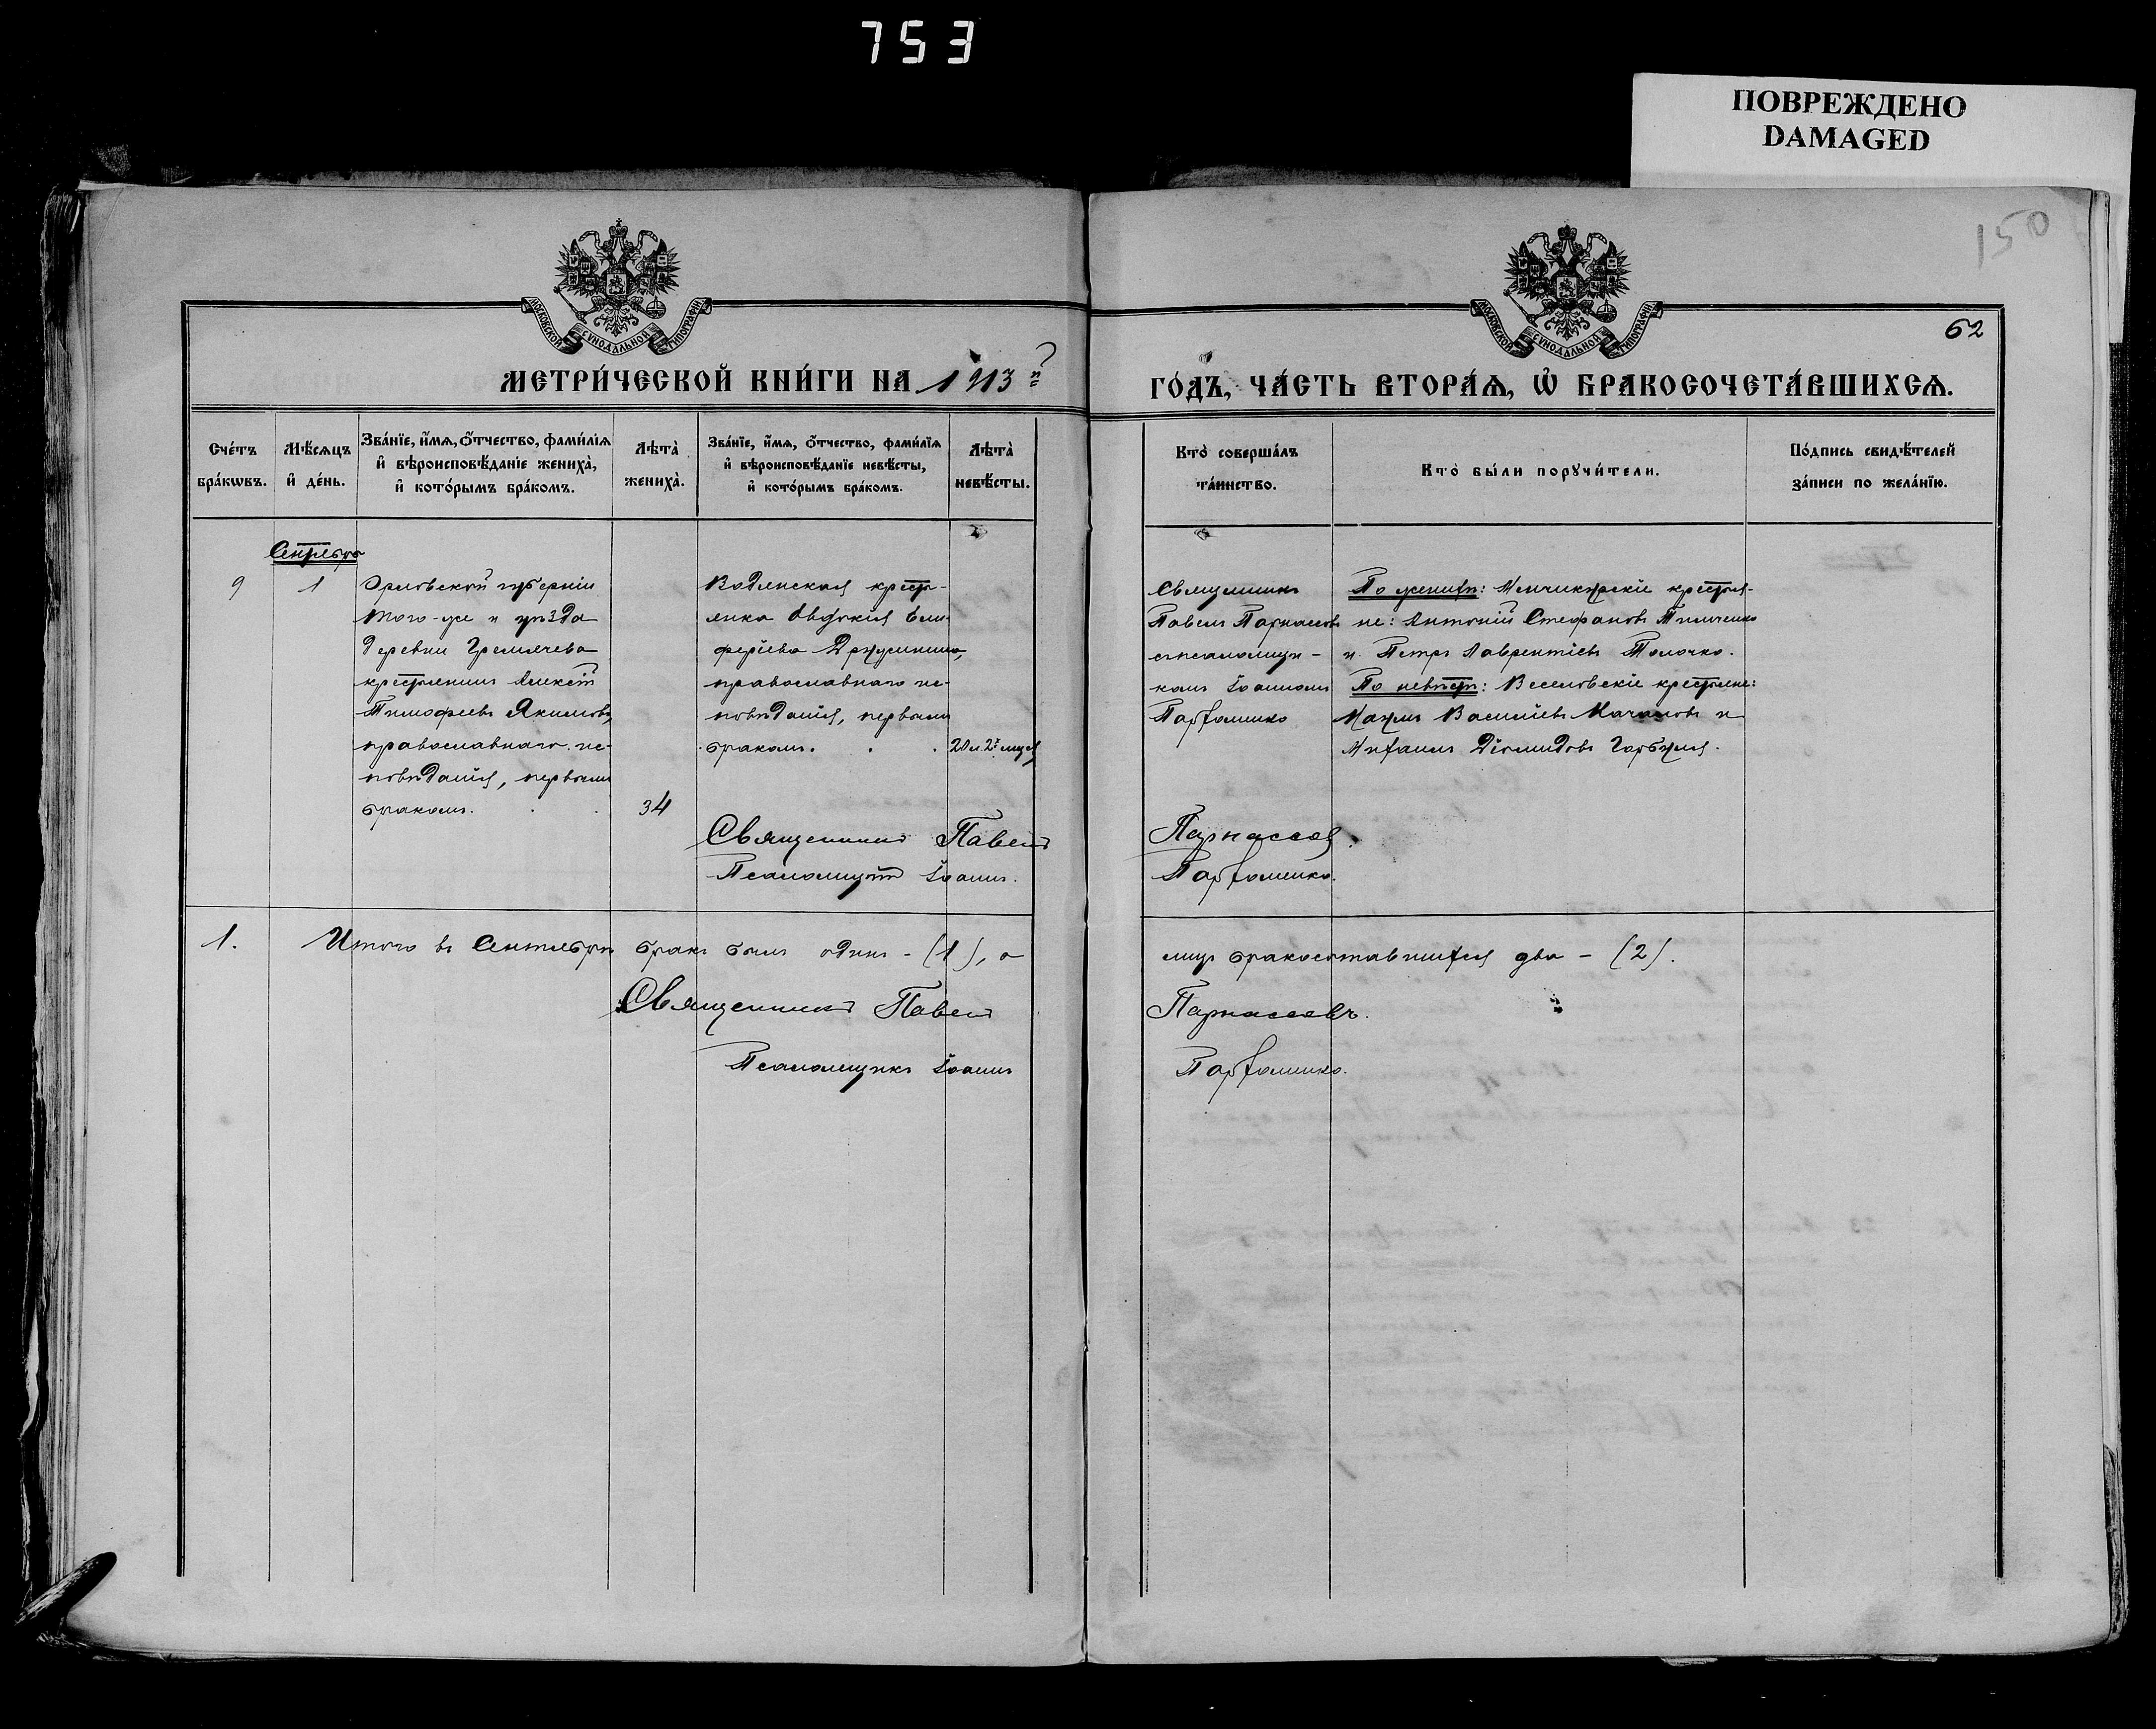 753
ПОВРЕЖДЕНО
DAMAGED
150
МОСКОВСКОЙ СѴНОДАЛЬНОЙ ТИПОГРАФІИ
МОСКОВСКОЙ СѴНОДАЛЬНОЙ ТИПОГРАФІИ
62
МЕТРИ́ЧЕСКОЙ КНИ́ГИ НА 1913й
ГО́ДЪ, ЧА́СТЬ ВТОРА́Ѧ, Ѡ БРАКОСОЧЕТА́ВШИХСѦ.
Сче́тъ бра́кѡвъ.
Мѣ́сѧцъ и де́нь.
Зва́нїе, и́мѧ, ѻ҆́тчество, фами́лїѧ и вѣроисповѣ́данїе жениха̀, и кото́рымъ бра́комъ.
Лѣта̀ жениха̀.
Зва́нїе, и́мѧ, ѻ҆́тчество, фами́лїѧ и вѣроисповѣ́данїе невѣ́сты, и кото́рымъ бра́комъ.
Лѣта̀ невѣ́сты.
Кто̀ соверша́лъ та́инство.
Кто̀ бы́ли порꙋчи́тели.
По́дпись свидѣ́телей за́писи по жела́нїю.
Сентябрь
9
1
Орловской губерніи
того-же и уѣзда
деревни Гремячева
крестьянинъ Алексѣй
Тимофеевъ Якимовъ,
православнаго ис-
повѣданія, первымъ
бракомъ.
34
Водянская кресть-
янка Евдокія Ели-
феріева
православнаго ис-
повѣданія, первымъ
бракомъ.
20 л. 2 мѣсяц
Священникъ
Павелъ Парнассовъ
съ псаломщи-
комъ Іоанномъ
Парѳоменко
По женихѣ: Менчикурскіе крестья-
не: Антоній Стефановъ
и Петръ Лаврентіевъ Толочко.
По невѣстѣ: Веселовскіе крестьяне:
Василіевъ и
Михаилъ Діомидовъ
Священникъ Павелъ Парнассов
Псаломщикъ Іоаннъ Парѳоменко.
1. Итого въ Сентябрѣ бракъ былъ одинъ - (1), а лицъ бракосочетавшихся два - (2).
Священникъ Павелъ Парнассовъ.
Псаломщикъ Іоаннъ Парѳоменко.